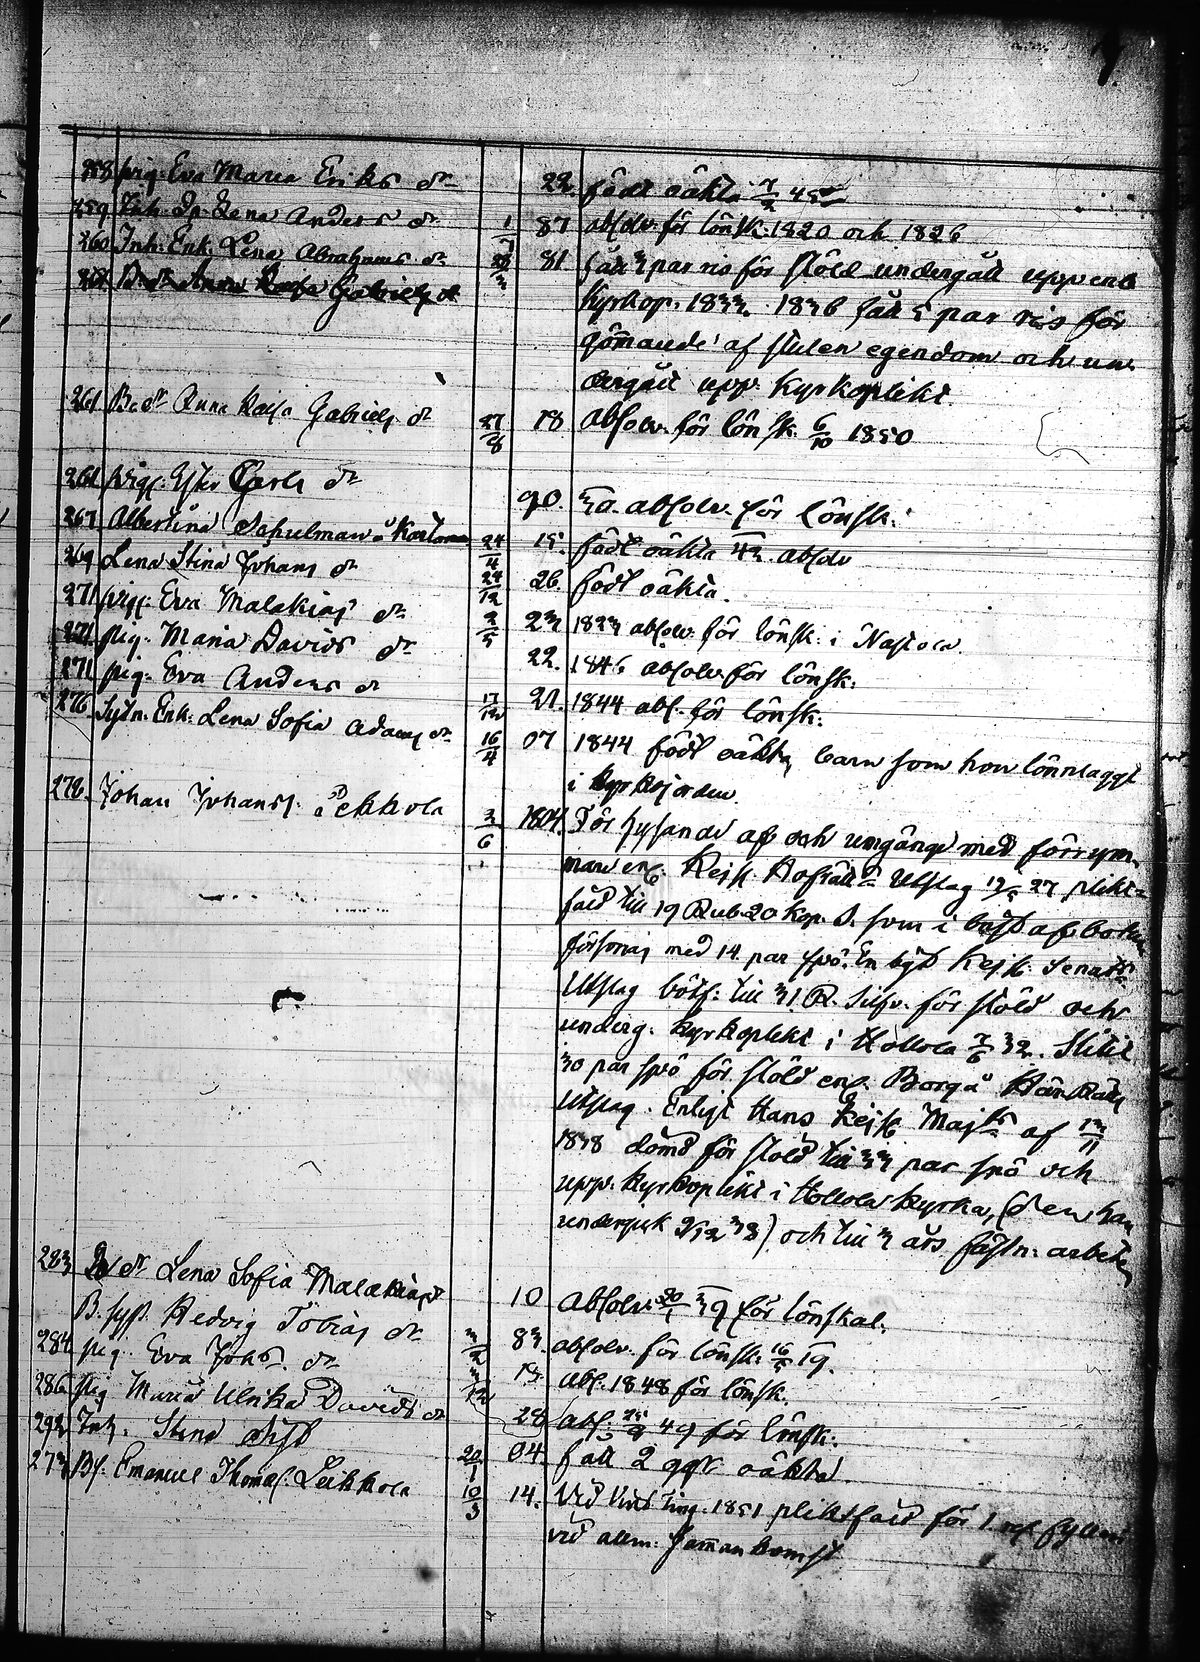 258 pig. Eva Maria Eriks dr 22 födt oäkta 7/2 45
259 Inh. Lena Anders dr 1/7 87 absolv. för lönsk. 1820 och 1826
260 Inh. Enk. Lena Abrahams dr 81 fått 3 par ris för stöld undergått uppenb
Gabriels dr kyrkop. 1833. 1836 fått 5 par ris för
gömande af stulen egendom och un
dergått upp. kyrkoplikt.
261 B. dr Anna Kaisa Gabriels dr 27/8 18 absolv. för lönsk. 6/10 1850
261 pig. Carls dr 90. absolv. för lönsk.
267 Albertina Schulman 24/4 15 födt oäkta 42 absolv
269 Lena Stina Johans dr 24/12 26. födt oäkta.
271 pig. Eva Malakias dr 2/5 23 1823 absolv. för lönsk. i Nastola.
271 pig. Maria Davids dr 22. 1846 absolv. för lönsk.
271 pig. Eva Anders dr 17/12 21. 1844 abs. för lönsk.
276 Sytn. Enk. Lena Sofia Adams dr 16/4 07 1844 födt oäkta barn som hon lönnlaggt
i kyrkojorden.
278. Johan Johanss. 3/6 1804. För hysande af och umgänge med förrym
man enl. Kejs. Hofrätts Utslag 12/5 27 plikt=
fäld till 19 Rub. 20 Kop. S. som i brist af botum
försonas med 14 par spö. En ligt Kejs. Senats
Utslag bötf. till 31 R. Silfv. för stöld och
underg. kyrkoplikt i Hollola 7/6 32. Slitit
30 par spö för stöld enl. Borgå Häradsrätts
Utslag. Enligt Hans Kejs. Majts af 13/11
1838 dömd för stöld till 33 par spö och
upp. kyrkoplikt i Hollola kyrka, (den han
undergick 9/12 38) och till 3 års fästn. arbete
283 dr Lena Sofia Malakias dr 10 absolv. 20/1 39 för lönskal.
B. Hedvig Tobias dr 3/2 83. absolv. för lönsk. 19.
284 pig Eva Johs. dr 18 abs. 1848 för lönsk.
286 pig Maria Ulrika Davids dr 28 abs. 49 för lönsk.
292 Inh. Stina 20/1 04. fått 2 ggr oäkta
273 Bs. Emanuel Thomas. Leikkola 10/3 14. Vid ting. 1851 pliktfäld för 1 fylleri
vid allm. sammankomst